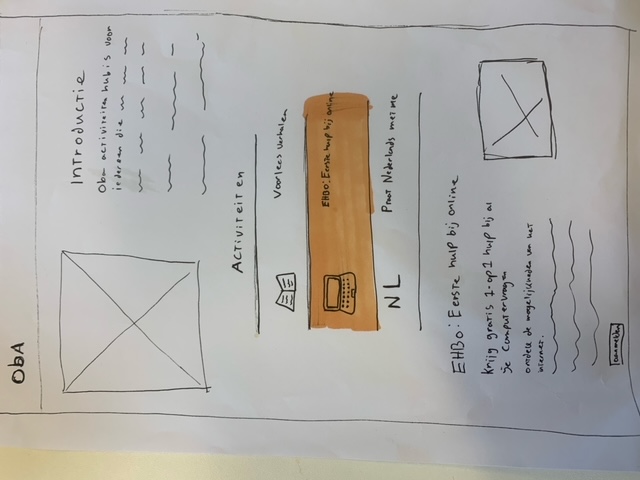 ObA
Introductie
Oba activiteiten hub is voor
iedereen die
Activiteiten
Voorlees verhalen
EHBO: Eerste hulp bij online
NL
Praat Nederlands met me
EHBO: Eerste hulp bij online
Krijg gratis 1-op1 hulp bij al
je computervragen
ontdek de mogelijkheden van het
internet.
aanmelden